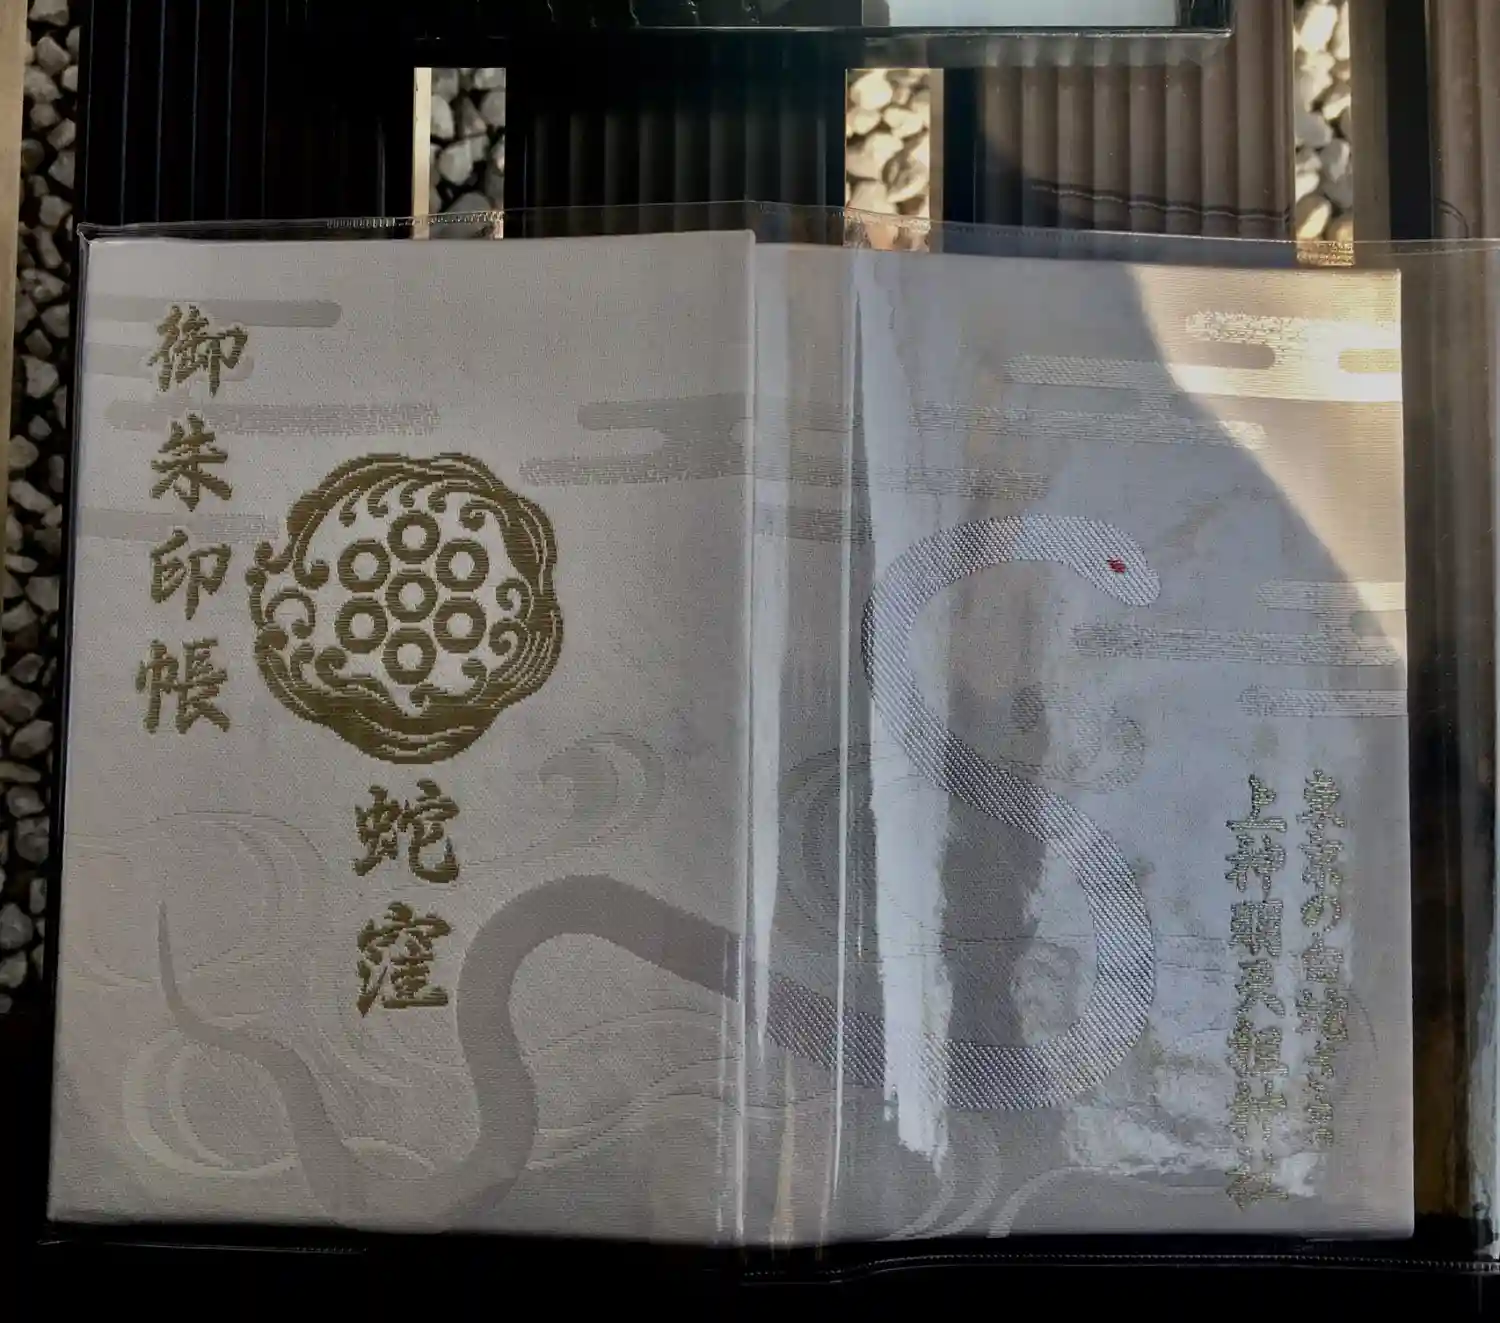 御朱印帳
蛇窪
東京の白蛇さま
上神明天祖神社